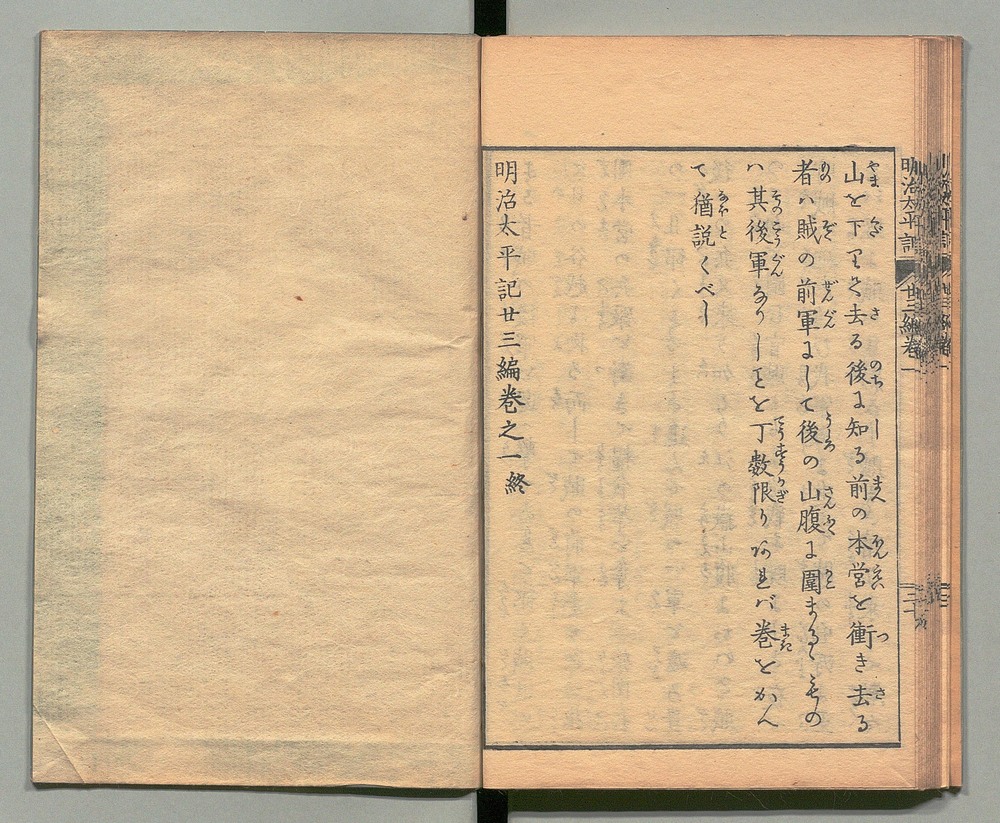 山を下りて去る後に知る前の本営を衝き去る
者ハ賊の前軍にして後の山腹に囲まるゝもの
ハ其後軍なりしことを丁数限りあれバ巻をかへ
て猶説くべし
明治太平記廿三編巻之一終
明治太平記 廿三編巻一